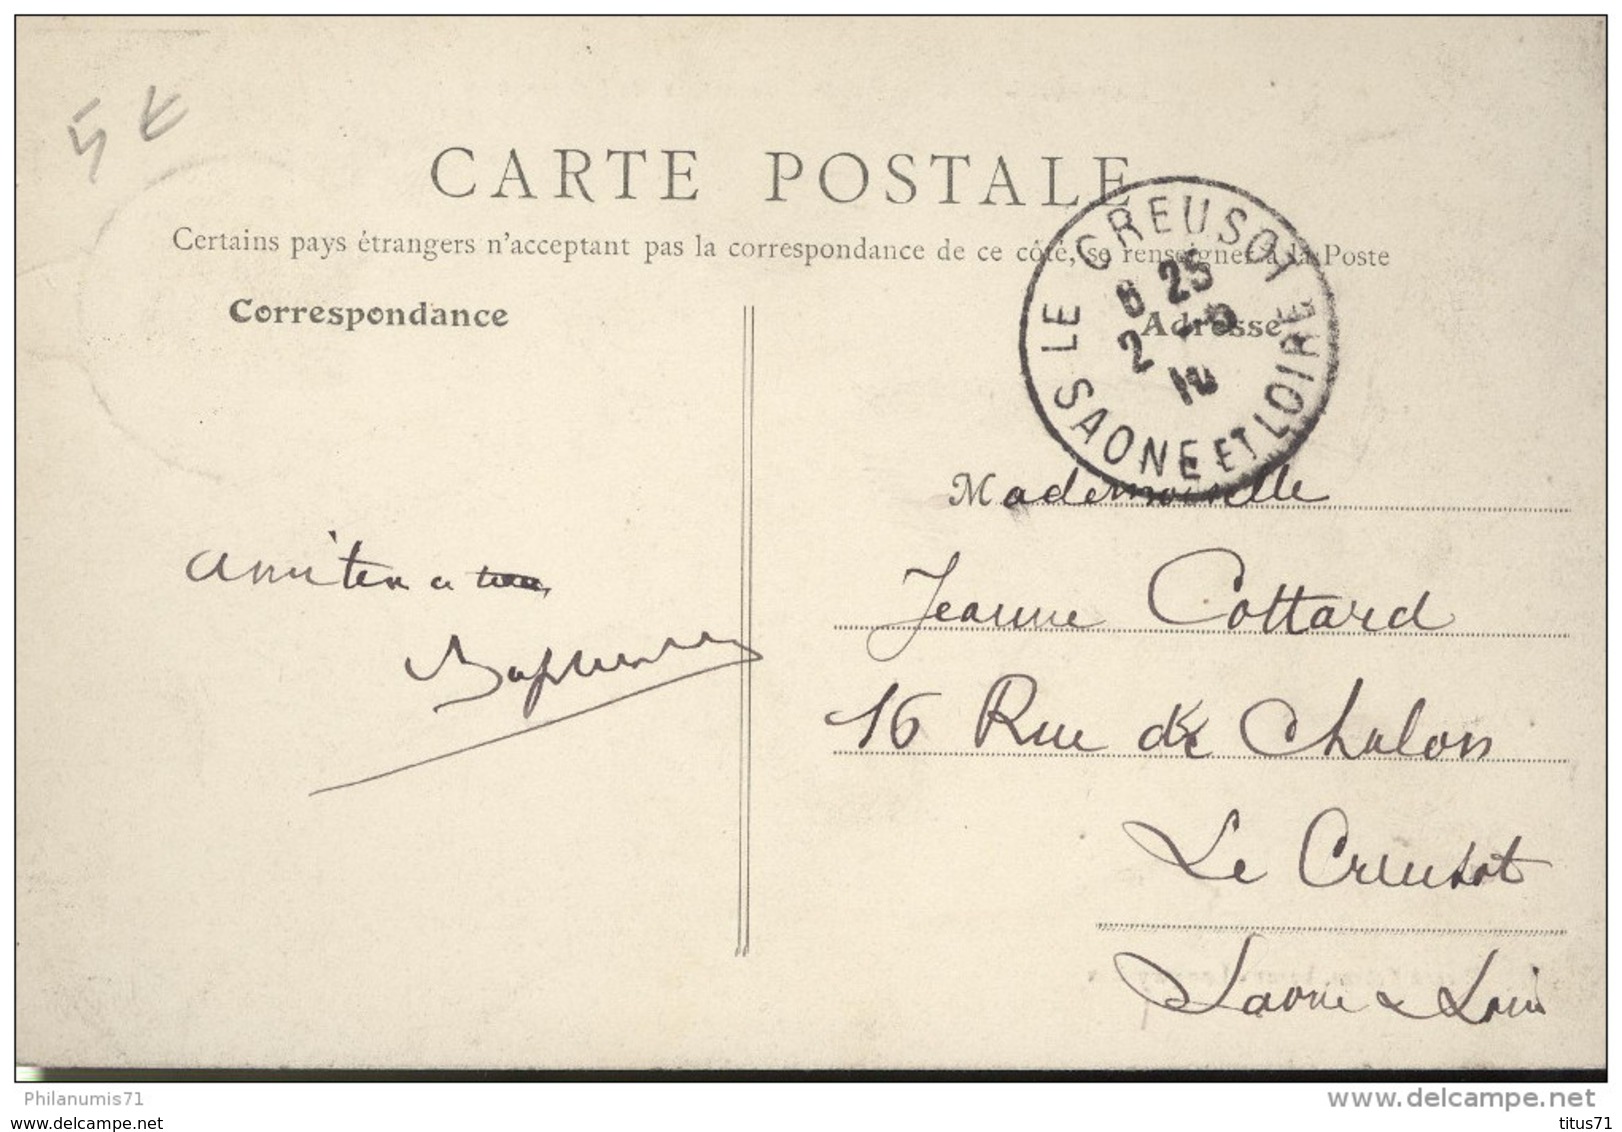 5 €
CARTE POSTALE
Certains pays étrangers n'acceptant pas la correspondance de ce côté, se renseigner à la Poste
Correspondance
Adresse
LE CREUSOT
8 25
2 - 5
10
SAONE ET LOIRE
Mademoiselle
Jeanne Cottard
16 Rue de Chalon
Le Creusot
Saone & Loire
a
Philanumis71
www.delcampe.net
www.delcampe.net
titus71